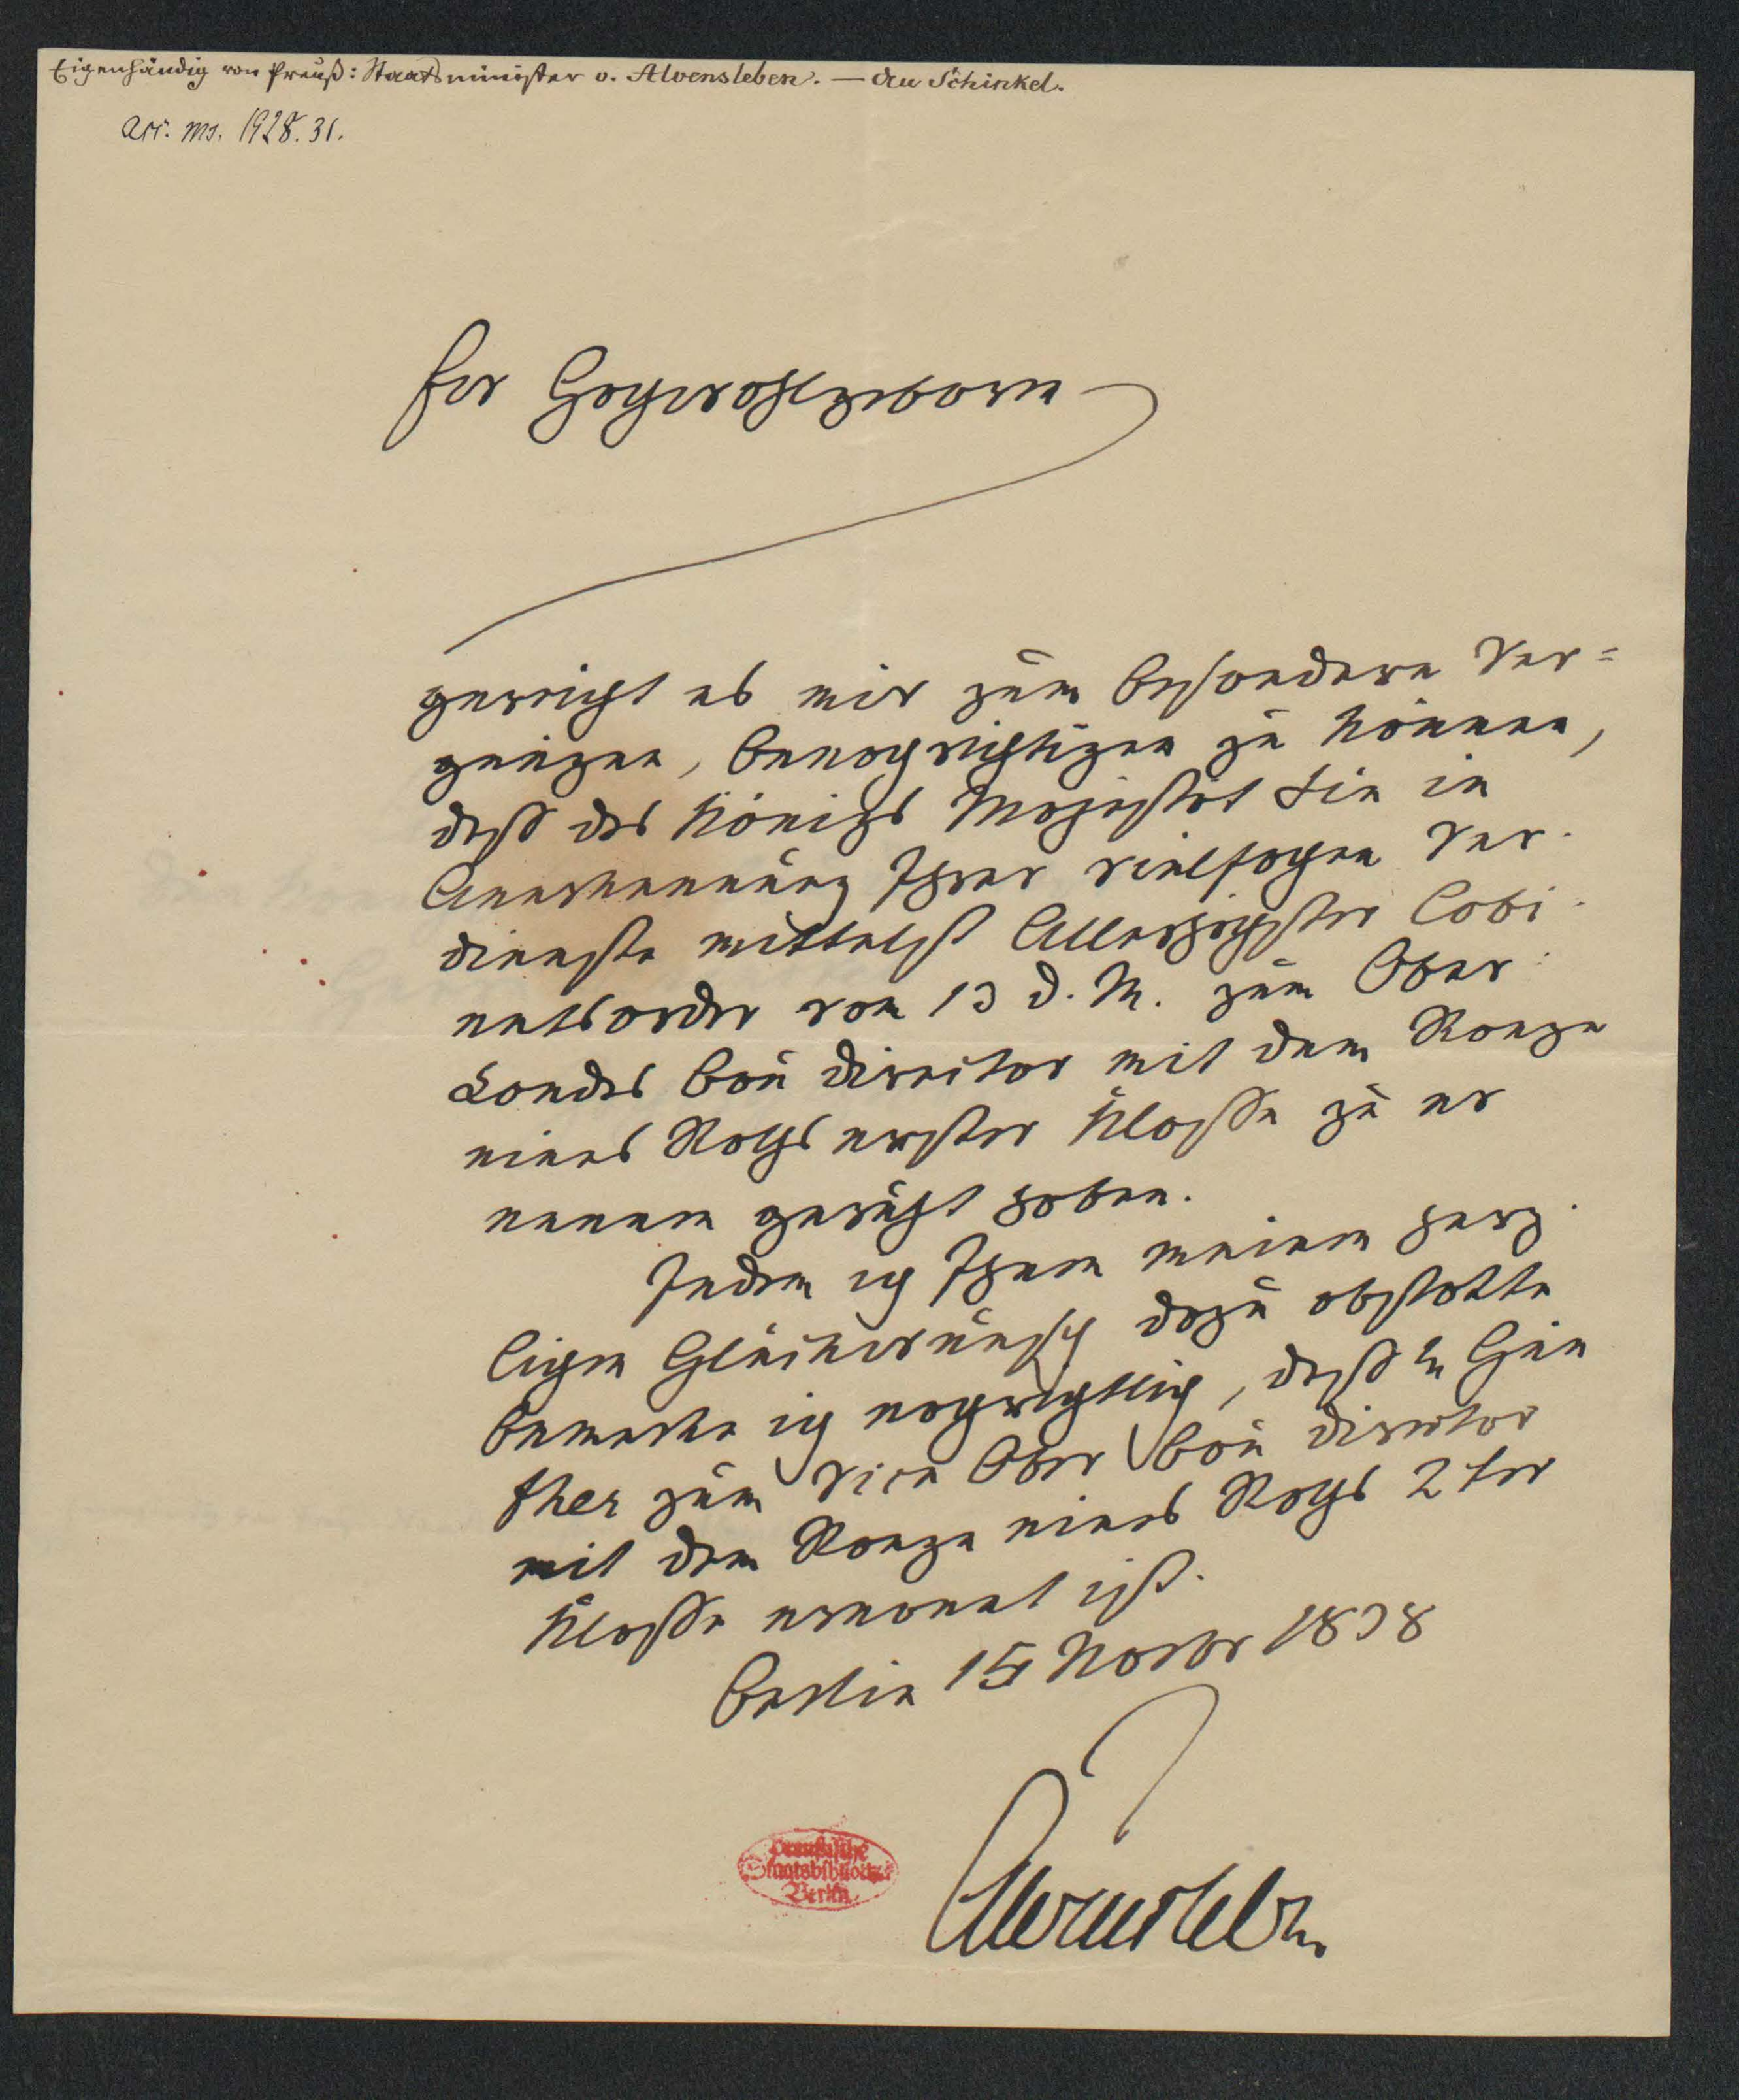 Eigenhändig von Preuß: Staatsminister v. Alvensleben. — An Schinkel.
acc. ms. 1928. 31.
Ew Hochwohlgeborn
gereicht es mir zum besondern Ver=
gnügen, benachrichtigen zu können,
daß des Königs Majestät Sie in
Anerkennung Ihrer vielfachen Ver-
dienste mittelst Allerhöchster Cabi-
netsorder vom 13 d. M. zum Ober-
Landes Bau Director mit dem Range
eines Raths erster Klasse zu er
nennen geruht haben.
Indem ich Ihnen meinen herz-
lichen Glückwunsch dazu abstatte
bemerke ich nachrichtlich, daß H Gün
ther zum Vice Ober Bau Director
mit dem Range eines Raths 2ter
Klasse ernannt ist.
Berlin 15 Novbr 1838
Alvensleben
Preußische
Staatsbibliothek
Berlin